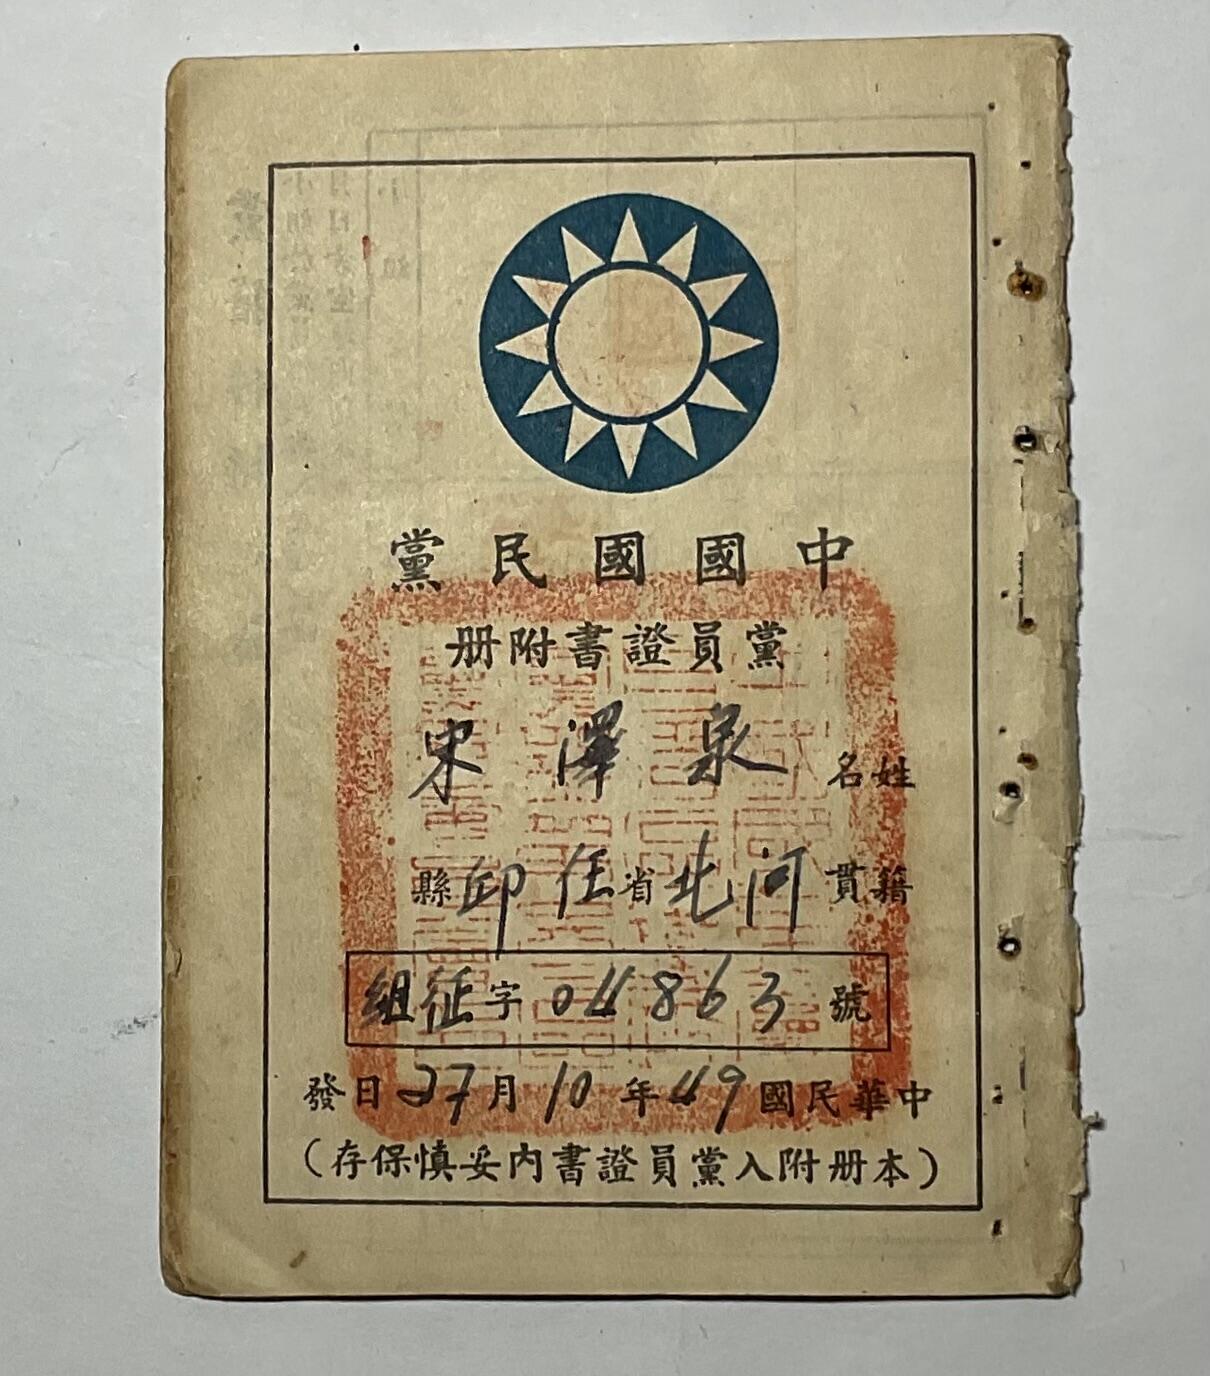 中國國民黨
黨員證書附册
姓名 宋澤泉
籍貫 河北省任邱縣
組征字04863號
中華民國49年10月27日發
(本册附入黨員證書內妥慎保存)